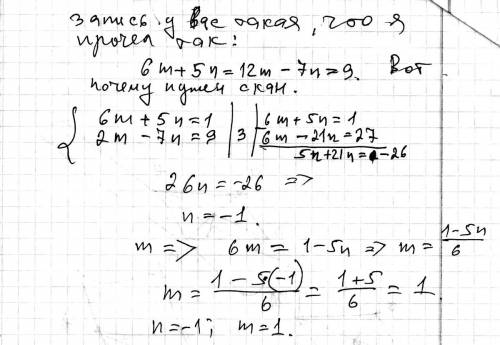 запись у вас такая, что я
прочел так:
6m+5n=12m-7n=9. Вот
почему нужен скан.
{ 6m+5n=1 | 3 | 6m+5n=1
2m-7n=9 | | 6m-21n=27
5n+21n=-26
26n=-26 =>
n=-1.
m => 6m=1-5n => m=\frac{1-5n}{6}
m=\frac{1-5(-1)}{6}=\frac{1+5}{6}=1
n=-1; m=1.